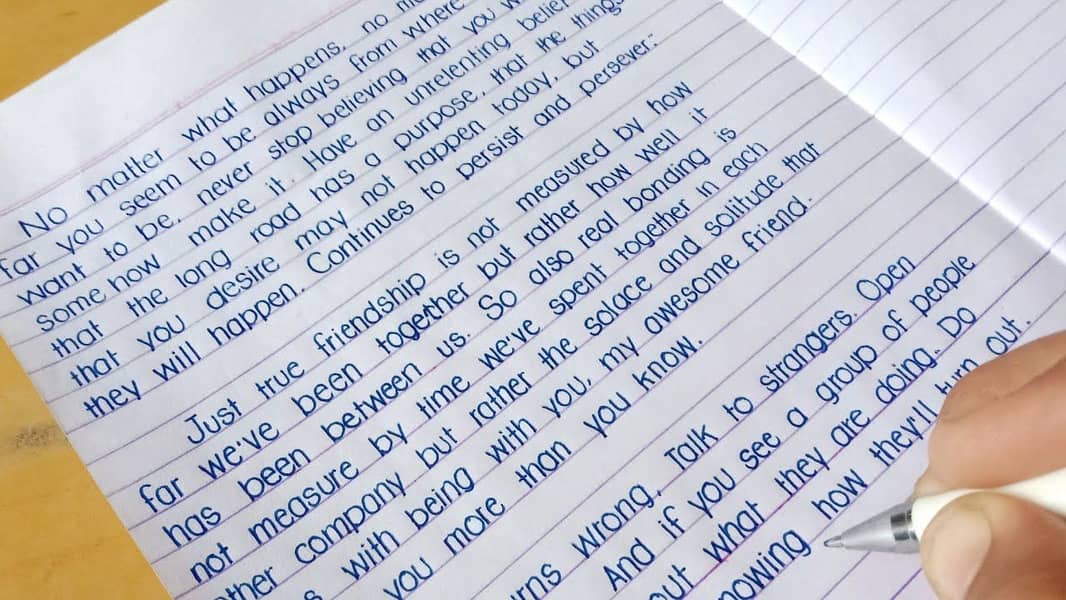 No matter what happens, no
far you seem to be always from where
want to be, never stop believing that you
some how make it. Have an unrelenting belief
that the long road has a purpose, that the things
that you desire may not happen today, but
they will happen. Continues to persist and persever.
Just true friendship is not measured by how
far we've been together but rather how well it
has been between us. So also real bonding is
not measure by time we've spent together In each
ther company but rather the solace and solitude that
s with being with you, my awesome friend.
you more than you know.
rns wrong. Talk to strangers. Open
And if you see a group of people
out what they are doing. Do
nowing how they'll turn out.